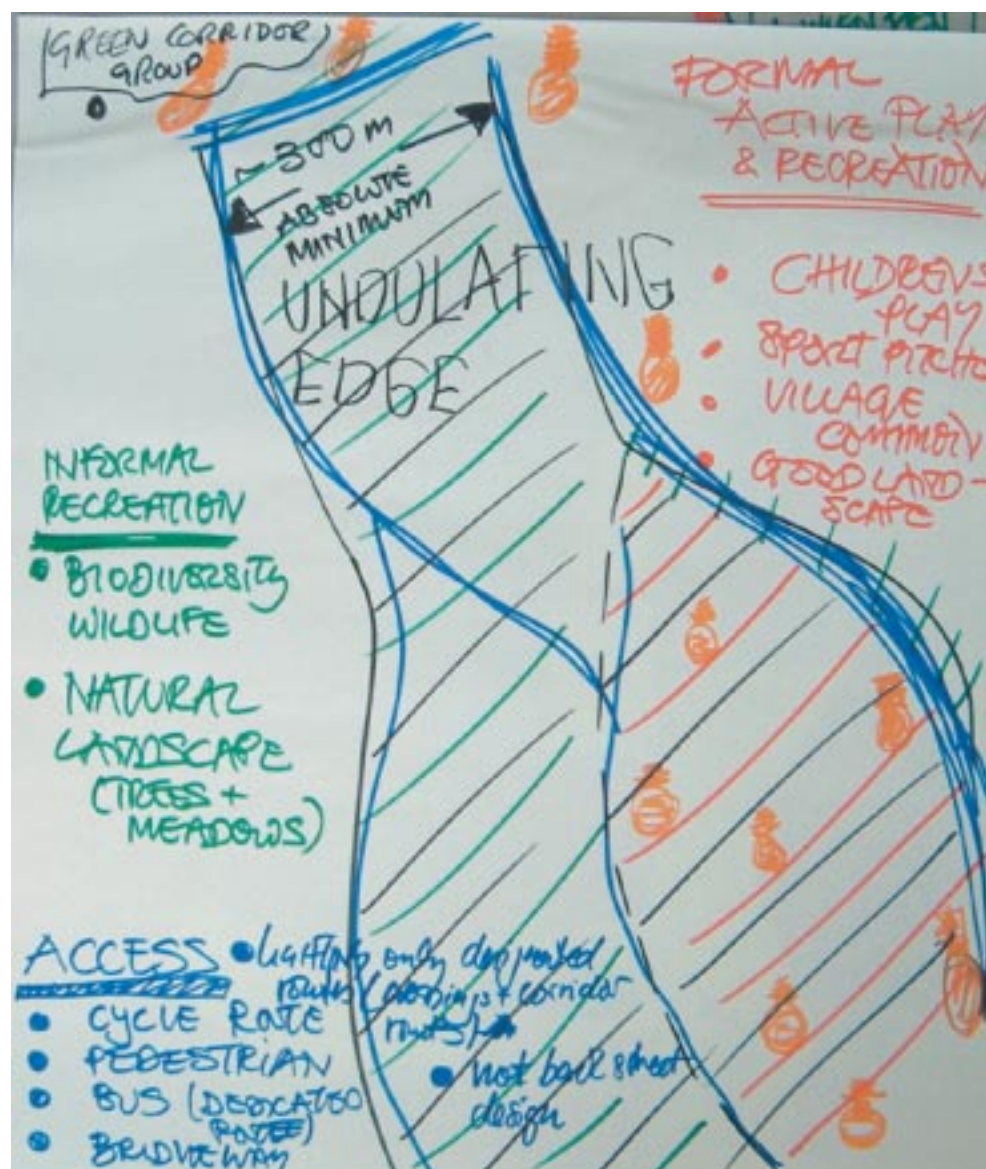 GREEN CORRIDOR
GROUP
~ 300 m
ABSOLUTE
MINIMUM
UNDULATING
EDGE
FORMAL
ACTIVE PLAY
& RECREATION
• CHILDRENS
PLAY
• SPORT PITCHE
• VILLAGE
COMMON
• GOOD LAND-
SCAPE
INFORMAL
RECREATION
• BIODIVERSITY
WILDLIFE
• NATURAL
LANDSCAPE
(TREES +
MEADOWS)
ACCESS
• CYCLE ROUTE
• PEDESTRIAN
• BUS (DEDICATED
ROUTE)
• BRIDLEWAY
• Lighting only
routes (crossings + corridor
routes)
• not back street
design